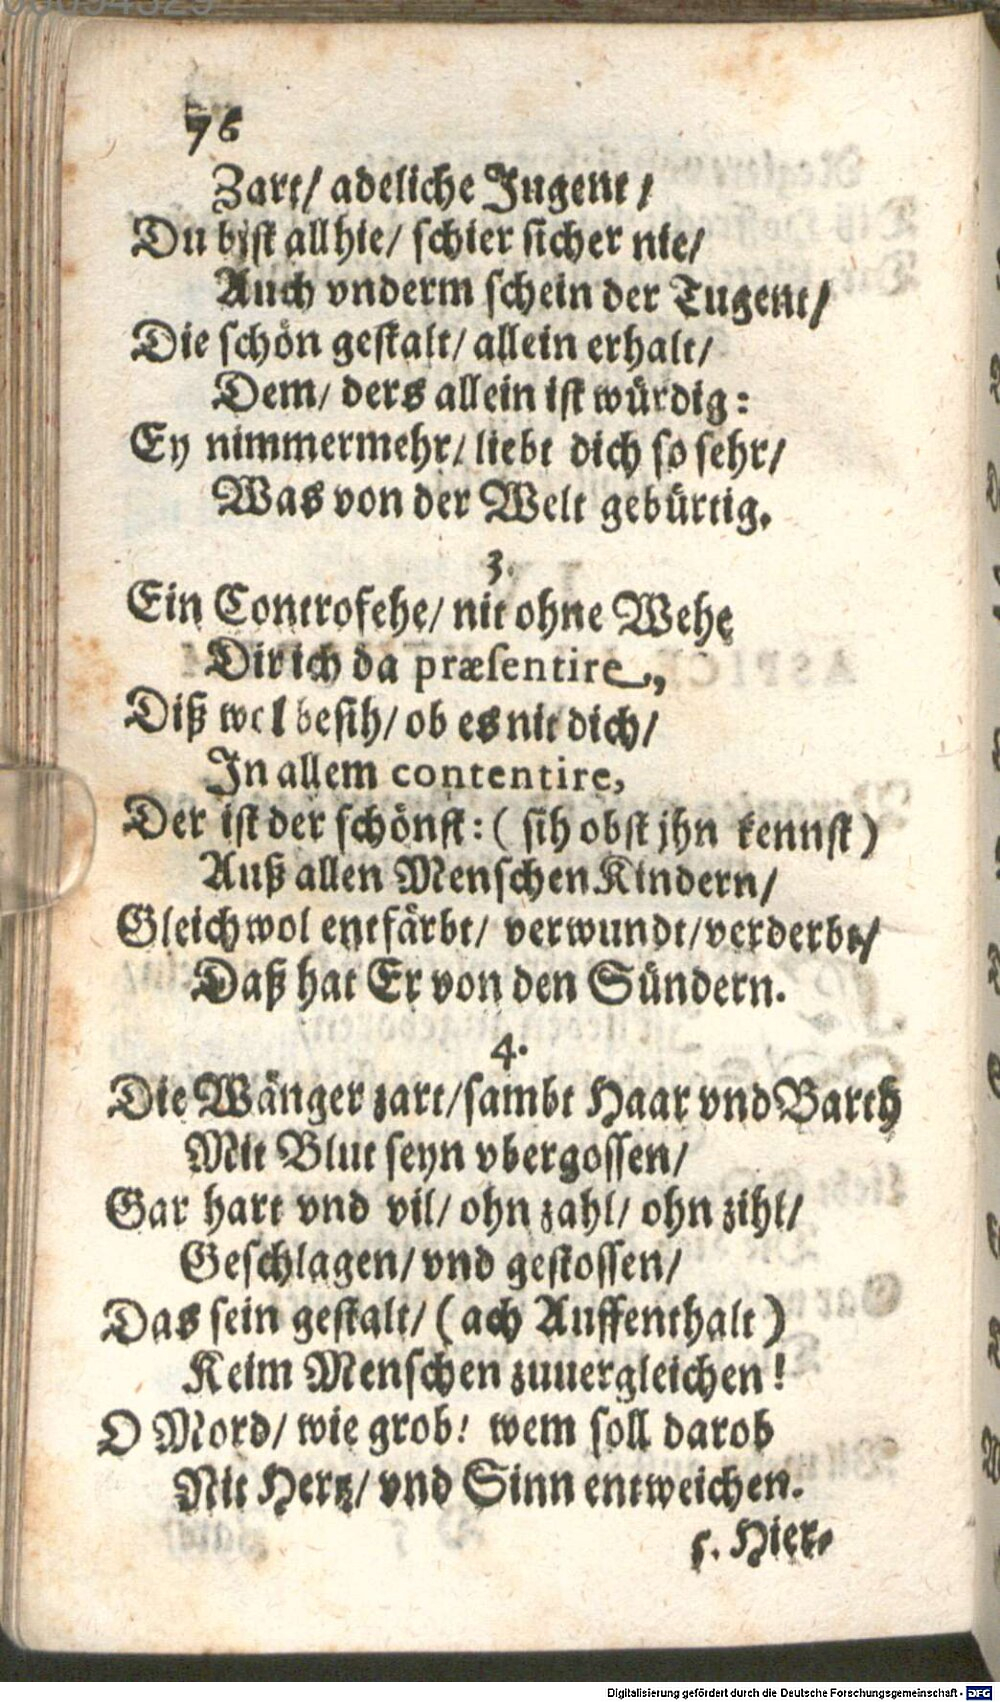 76
Zart/ adeliche Jugent/
Du bist allhie/ schier sicher nie/
Auch vnderm schein der Tugent/
Die schön gestalt/ allein erhalt/
Dem/ ders allein ist würdig:
Ey nimmermehr/ liebt dich so sehr/
Was von der Welt gebürtig.
3.
Ein Controfehe/ nit ohne Wehe
Dir ich da præsentire,
Diß wol besih/ ob es nit dich/
In allem contentire,
Der ist der schönst: ( sih obst jhn kennst )
Auß allen Menschen Kindern/
Gleichwol entfärbt/ verwundt/ verderbt/
Daß hat Er von den Sündern.
4.
Die Wänger zart/ sambt Haar vnd Barth
Mit Blut seyn vbergossen/
Gar hart vnd vil/ ohn zahl/ ohn zihl/
Geschlagen/ vnd gestossen/
Das sein gestalt/ ( ach Auffenthalt )
Keim Menschen zuuergleichen!
O Mord/ wie grob! wem soll darob
Nit Hertz/ vnd Sinn entweichen.
5. Hier-
Digitalisierung gefördert durch die Deutsche Forschungsgemeinschaft - DFG